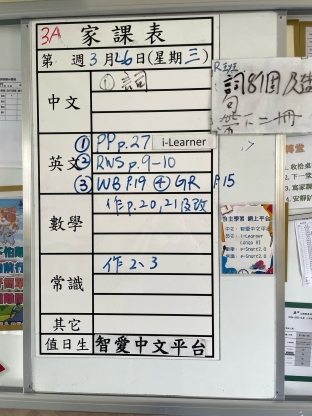 3A 家課表
第 週3月26日(星期三)
R班
詞8個及造
句
下二冊
中文 ① 詞
① PP p.27 i-Learner
英文 ② RWS p.9-10
③ WB P.19 ④ GR P.15
數學 作p.20,21及改
常識 作2、3
其它
值日生 智愛中文平台
自主學習 網上平台
i-Learner